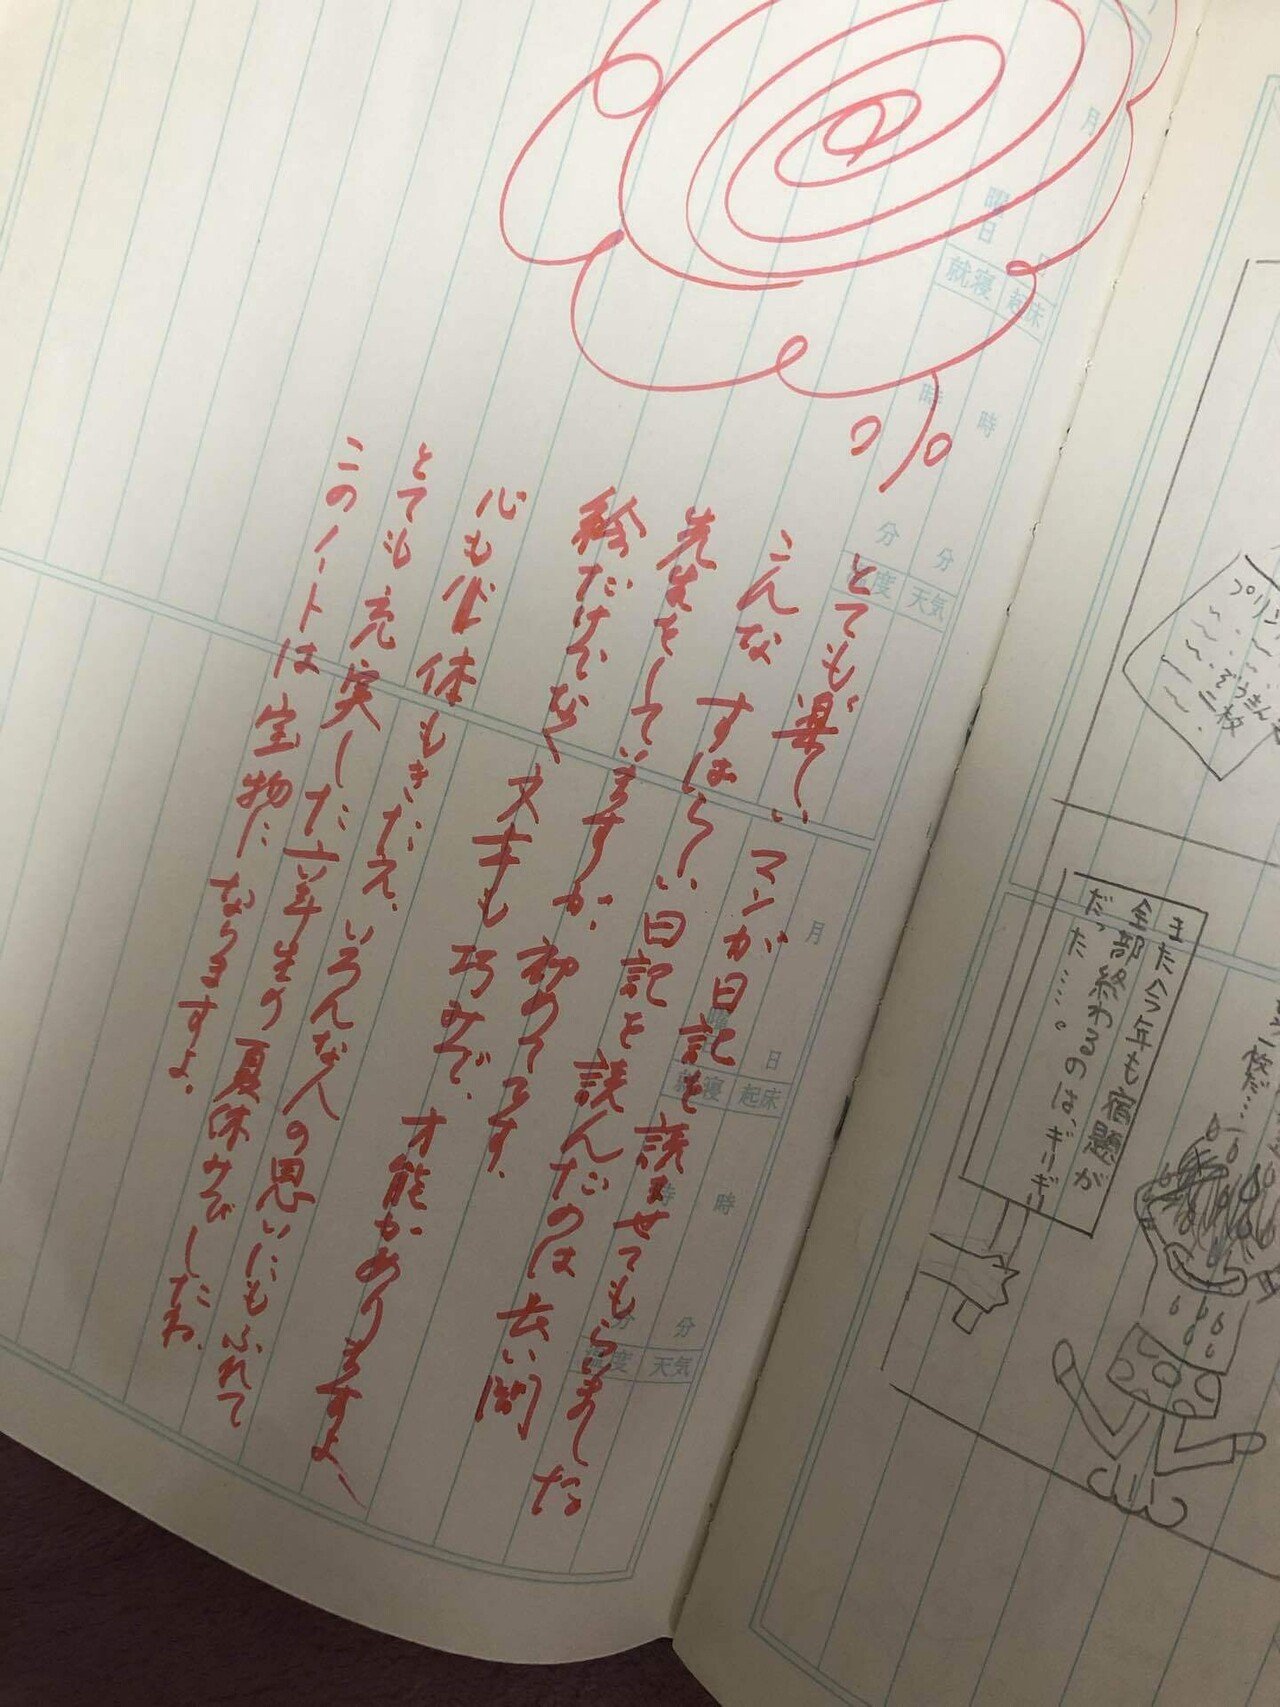 プリン
ぞうきん
二枚
枚だ…
また今年も宿題が
全部終わるのは、ギリギリ
だった……。
月 日 曜日
起床 時 分
就寝 時 分
天気 温度
月 日 曜日
起床 時 分
就寝 時 分
天気 温度
とても楽しいマンガ日記を読ませてもらいました
こんなすばらしい日記を読んだのは長い間
先生をしていますが、初めてです。
絵だけでなく文才も巧みで、才能がありますよ、
心も体もきたえ、いろんな人の思いにもふれて
とても充実した六年生の夏休みでしたね、
このノートは宝物になりますよ、